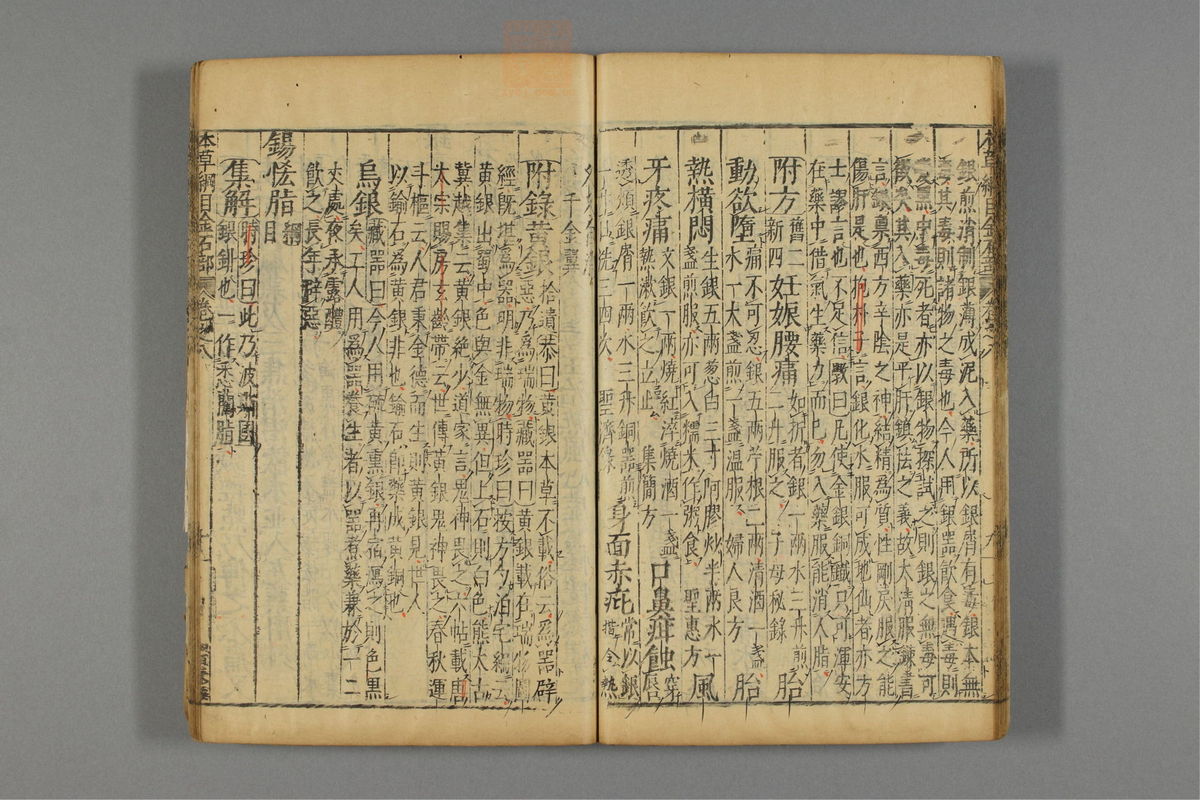 銀煎消制銀薄成泥入藥所以銀屑有毒銀本無
毒其毒則諸物之毒也今人用銀器飲食遇毒則
變黑中毒死者亦以銀物探試之則銀之無毒可
徵矣其入藥亦是平肝鎮怯之義故太清服鍊書
言銀稟西方辛陰之神結精為質性剛戾服之能
傷肝是也抱朴子言銀化水服可成地仙者亦方
士謬言也不足信斅曰凡使金銀銅鐵只可渾安
在藥中借氣生藥力而已勿入藥服能消人脂
附方舊二新四妊娠腰痛如折者銀一兩水三升煎二升服之子母秘錄胎
動欲墮痛不可忍銀五兩苧根二兩清酒一盞水一大盞煎一盞温服婦人良方胎
熱横悶生銀五兩葱白三寸阿膠炒半兩水一盞煎服亦可入糯米作粥食聖惠方風
牙疼痛文銀一兩燒紅淬燒酒一盞熱漱飲之立止集簡方口鼻疳蝕穿唇
透頰銀屑一兩水三升銅器煎一升日洗三四次聖濟錄身面赤疵常以銀揩令熱
千金翼
附錄黄銀拾遺恭曰黄銀本草不載俗云為器辟惡乃為瑞物藏器曰黄銀載在瑞物圖
經既堪為器明非瑞物時珍曰按方勺泊宅編云
黄銀出蜀中色與金無異但上石則白色熊太古
冀越集云黄銀絶少道家言鬼神畏之六帖載唐
太宗賜房玄齡帶云世傳黄銀鬼神畏之春秋運
斗樞云人君秉金德而生則黄銀見世人
以鍮石為黄銀非也鍮石即藥成黄銅也
烏銀藏器曰今人用硫黄熏銀再宿瀉之則色黑矣工人用為器養生者以器煮藥兼於庭高一二
丈處夜承露醴
飲之長年辟惡
錫恡脂綱目
集解時珍曰此乃波斯國銀鉚也一作悉藺脂
本草綱目金石部卷之八